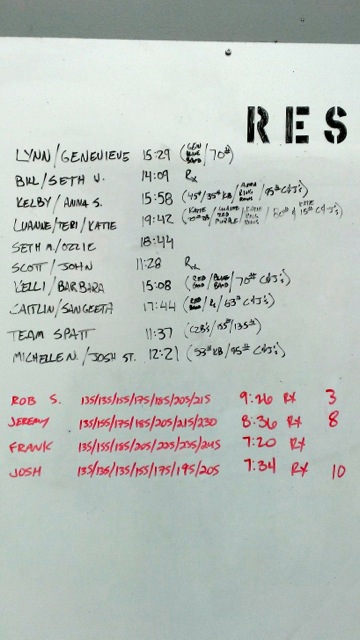 RES
LYNN/GENEVIEVE 15:29 (GEN BLUE BAND/70#)
BILL/SETH V. 14:09 Rx
KELBY/ANNA S. 15:58
LUANNE/TERI/KATIE 19:42
SETH M./OZZIE 18:44
SCOTT/JOHN 11:28 Rx
KELLI/BARBARA 15:08 (RED BAND/BLUE BAND/70# C&J's)
CAITLIN/SANGEETA 17:44 (RED BAND/ /63# C&J's)
TEAM SPATT 11:37
MICHELLE N./JOSH ST. 12:21 (53# KB/95# C&J's)
ROB S. 135/135/155/175/185/205/215 9:26 RX 3
JEREMY 135/155/175/185/205/215/230 8:36 RX 8
FRANK 135/155/185/205/205/235/245 7:20 RX
JOSH 135/135/135/155/175/195/205 7:34 RX 10